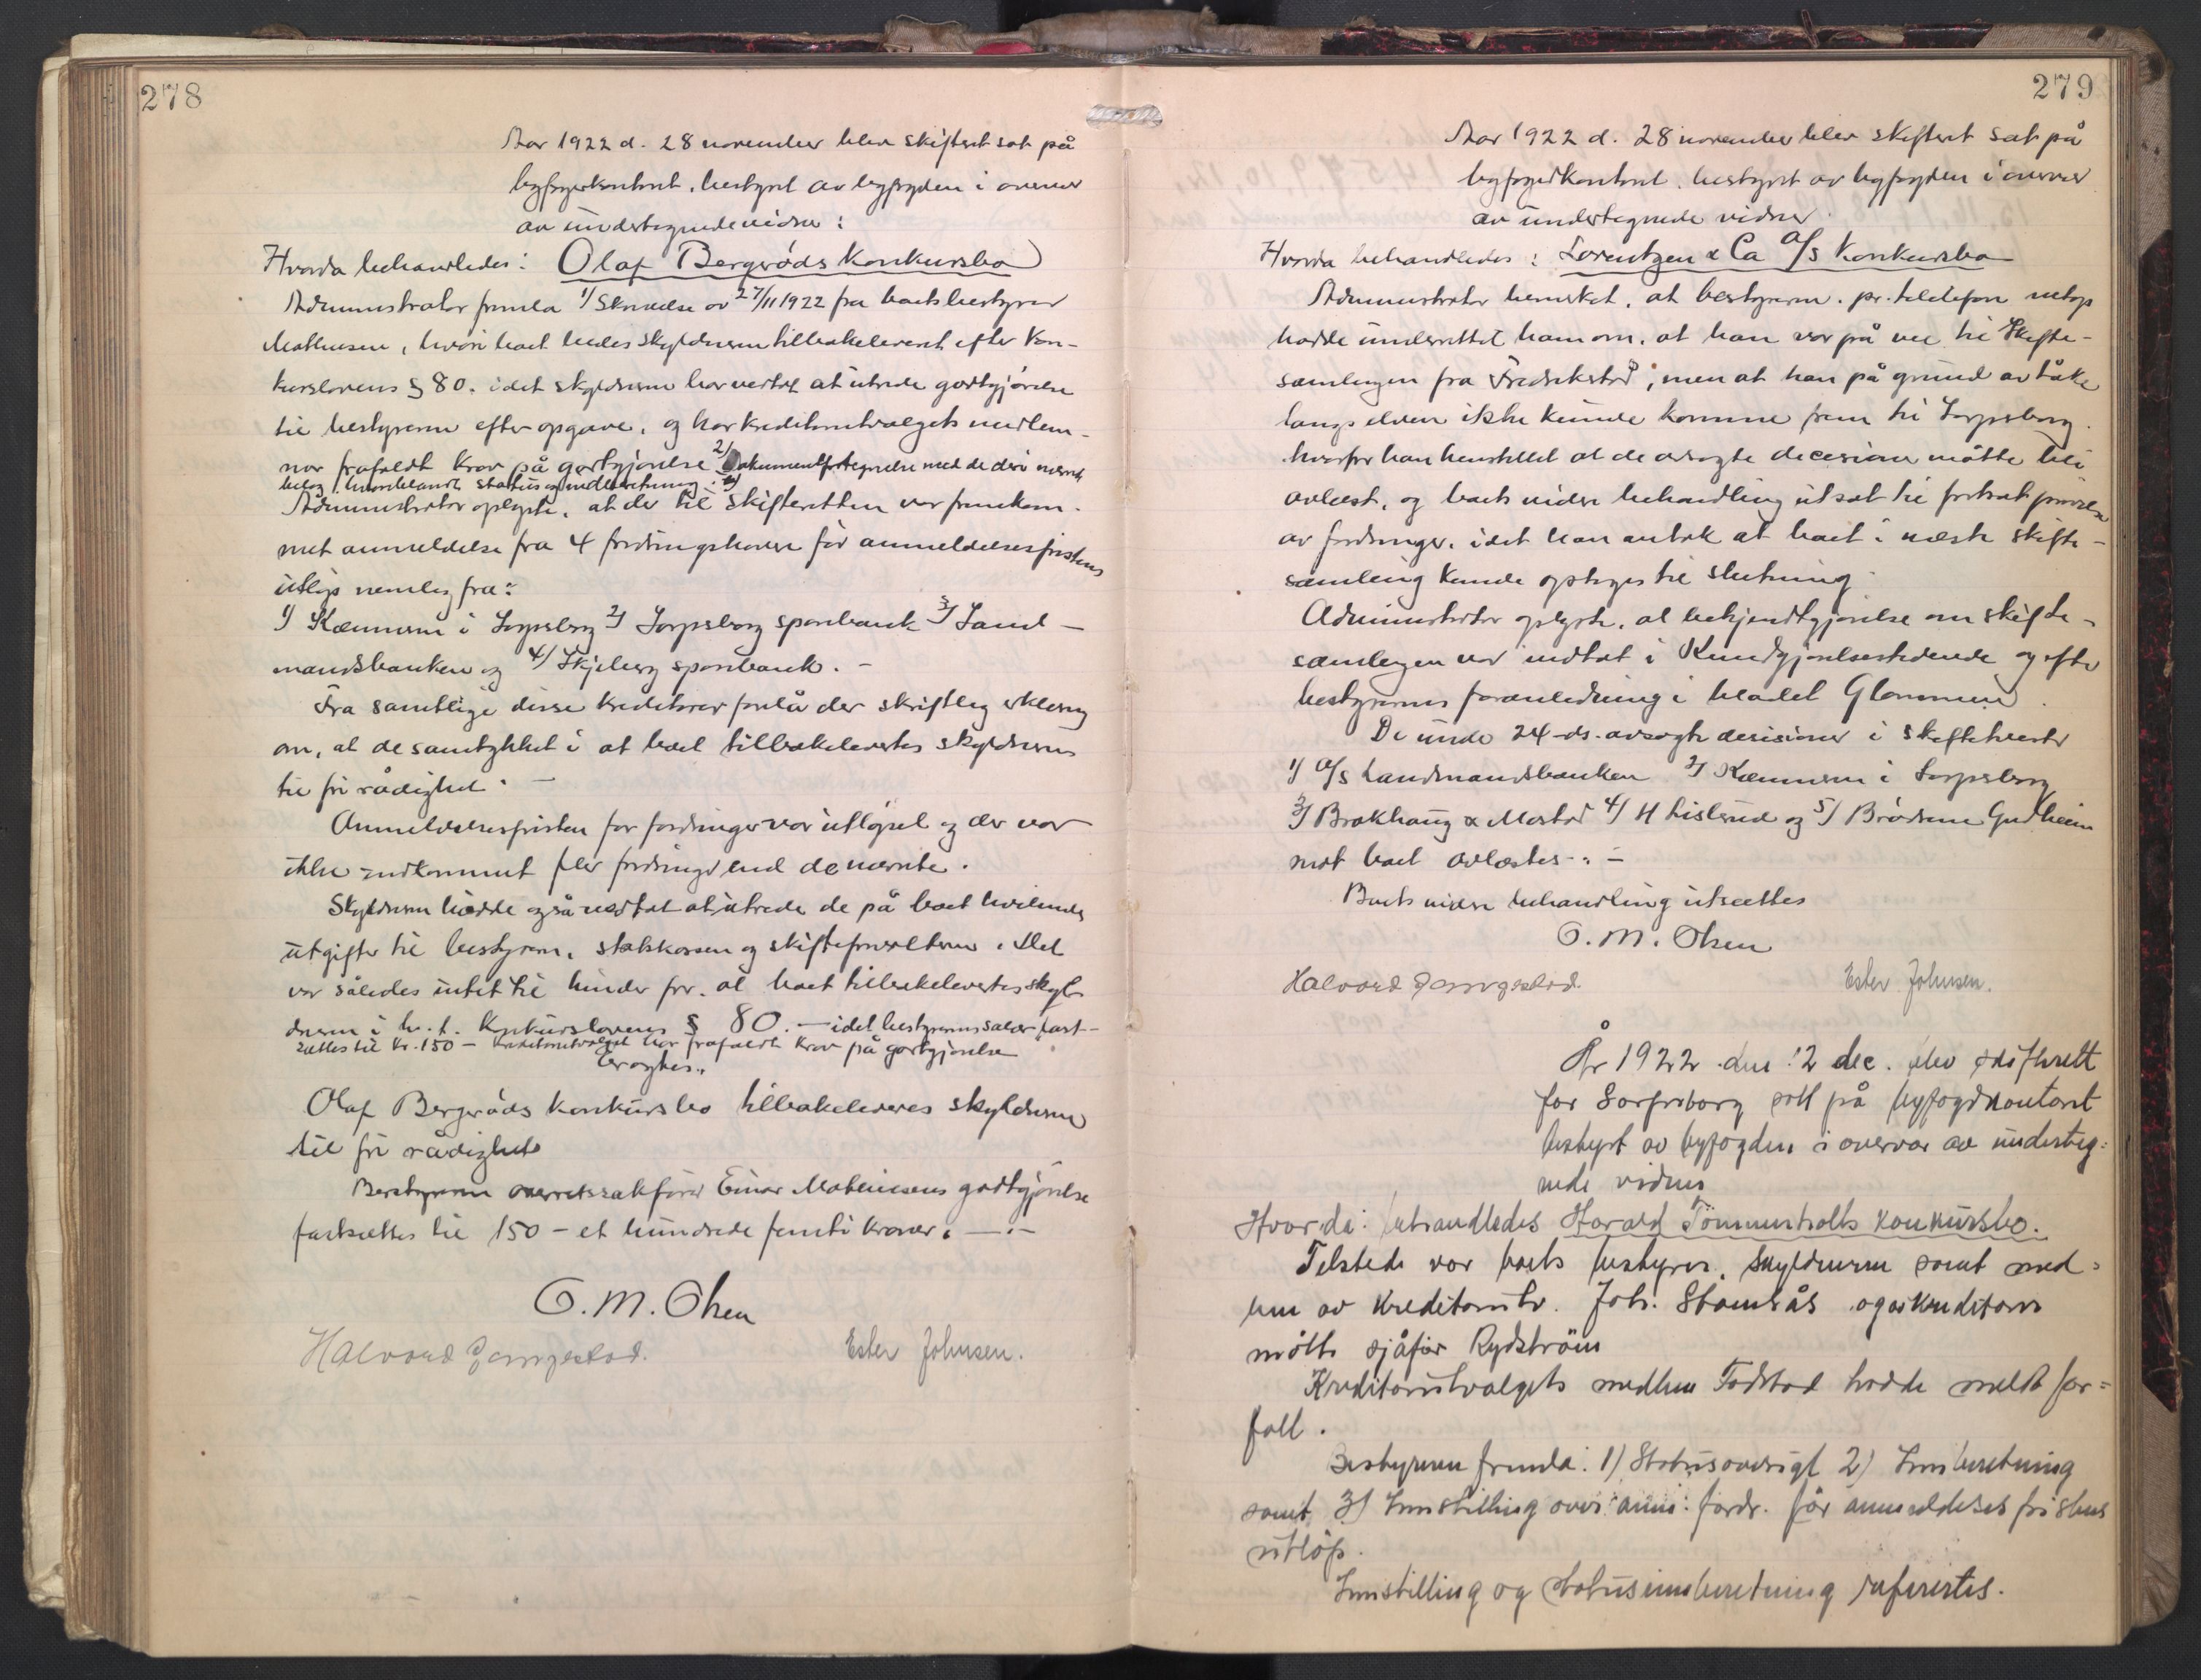 278
Aar 1922 d. 28 november blev skifteret sat på
byfogedkontoret, bestyret av byfogden i overvær
av undertegnede vidner:
Hvorda behandledes: Olaf Bergrøds Konkursbo
Administrator fremla 1/ Skrivelse av 27/11 1922 fra boets bestyrer
Mathiesen, hvori boet bedes skyldneren tilbakeleveret efter Kon-
kurslovens § 80. idet skyldneren har vedtat at utrede godtgjørelse
til bestyreren efter opgave, og har kreditorutvalgets medlem-
mer frafaldt krav på godtgjørelse 2/ Dokumentfortegnelse med de deri nævnte
bilag, hvoriblandt status og indberetning.
Administrator oplyste, at der til skifteretten var fremkom-
met anmeldelse fra 4 fordringshavere før anmeldelsesfristens
utløp nemlig fra:
1/ Kæmneren i Sarpsborg 2/ Sarpsborg sparebank 3/ Land-
mandsbanken og 4/ Skjeberg sparebank. -
Fra samtlige disse kreditorer forelå der skriftlig erklæring
om, at de samtykket i at boet tilbakelevertes skyldneren
til fri rådighet. -
Anmeldelsesfristen for fordringer var utløpet og der var
ikke indkommet fler fordringer end de nævnte.
Skyldneren hadde også vedtat at utrede de på boet hvilende
utgifter til bestyreren, statskassen og skifteforvalteren. Det
var således intet til hinder for, at boet tilbakelevertes skyld-
neren i h.t. Konkurslovens § 80. - idet bestyrerens salær fast-
sættes til kr. 150 - Kreditorutvalget har frafaldt krav på godtgjørelse
Eragtes:
Olaf Bergrøds konkursbo tilbakeleveres skyldneren
til fri rådighet
Bestyreren overretssakfører Einar Mathiesens godtgjørelse
fastsættes til 150 - et hundrede femti kroner. - . -
O. M. Olsen
Halvord Jamgestad.
Ester Johnsen.
279
Aar 1922 d. 28 november blev skifteret sat på
byfogedkontoret, bestyret av byfogden i overvær
av undertegnede vidner.
Hvorda behandledes: Lorentzen & Co A/S Konkursbo
Administrator bemerket, at bestyreren pr. telefon netop
hadde underrettet ham om, at han var på vei til Skifte-
samlingen fra Fredrikstad; men at han på grund av tåke
langs elven ikke kunde komme frem til Sarpsborg.
hvorfor han henstillet at de avsagte decisioner måtte bli
avlæst, og boets videre behandling utsat til fortsat prøvelse
av fordringer, idet han antok at boet i næste skifte-
samling kunde optages til slutning.
Administrator oplyste, at bekjendtgjørelse om skifte-
samlingen var indtat i Kundgjørelsestidende og efter
bestyrerens foranledning i bladet Glommen.
De under 24 ds. avsagte decisioner i skiftetvister
1/ A/S Landmandsbanken 2/ Kæmneren i Sarpsborg
3/ Brakhaug & Mostad 4/ H Lislerud og 5/ Brødrene Gudheim
mot boet avlæstes. : -
Boets videre behandling utsættes
O. M. Olsen
Halvord Jamgestad.
Ester Johnsen.
År 1922 den 12 dec. blev skifterett
for Sarpsborg satt på byfogdkontoret
bestyrt av byfogden i overvær av underteg=
nede vidner
Hvorda: behandledes Harald Tømmerholts konkursbo.
Tilstede var boets bestyrer, skyldneren samt med=
lem av kreditorutv. Joh. Stomsås. og av kreditorer
møtte sjåfør Rydström
Kreditorutvalgets medlem Todstad hadde meldt for=
fall.
Bestyreren fremla: 1) Statusoversigt 2) Innberetning
samt 3) Innstilling over anm. fordr. før anmeldelsesfristens
utløp.
Innstilling og statusinnberetning refereertes.